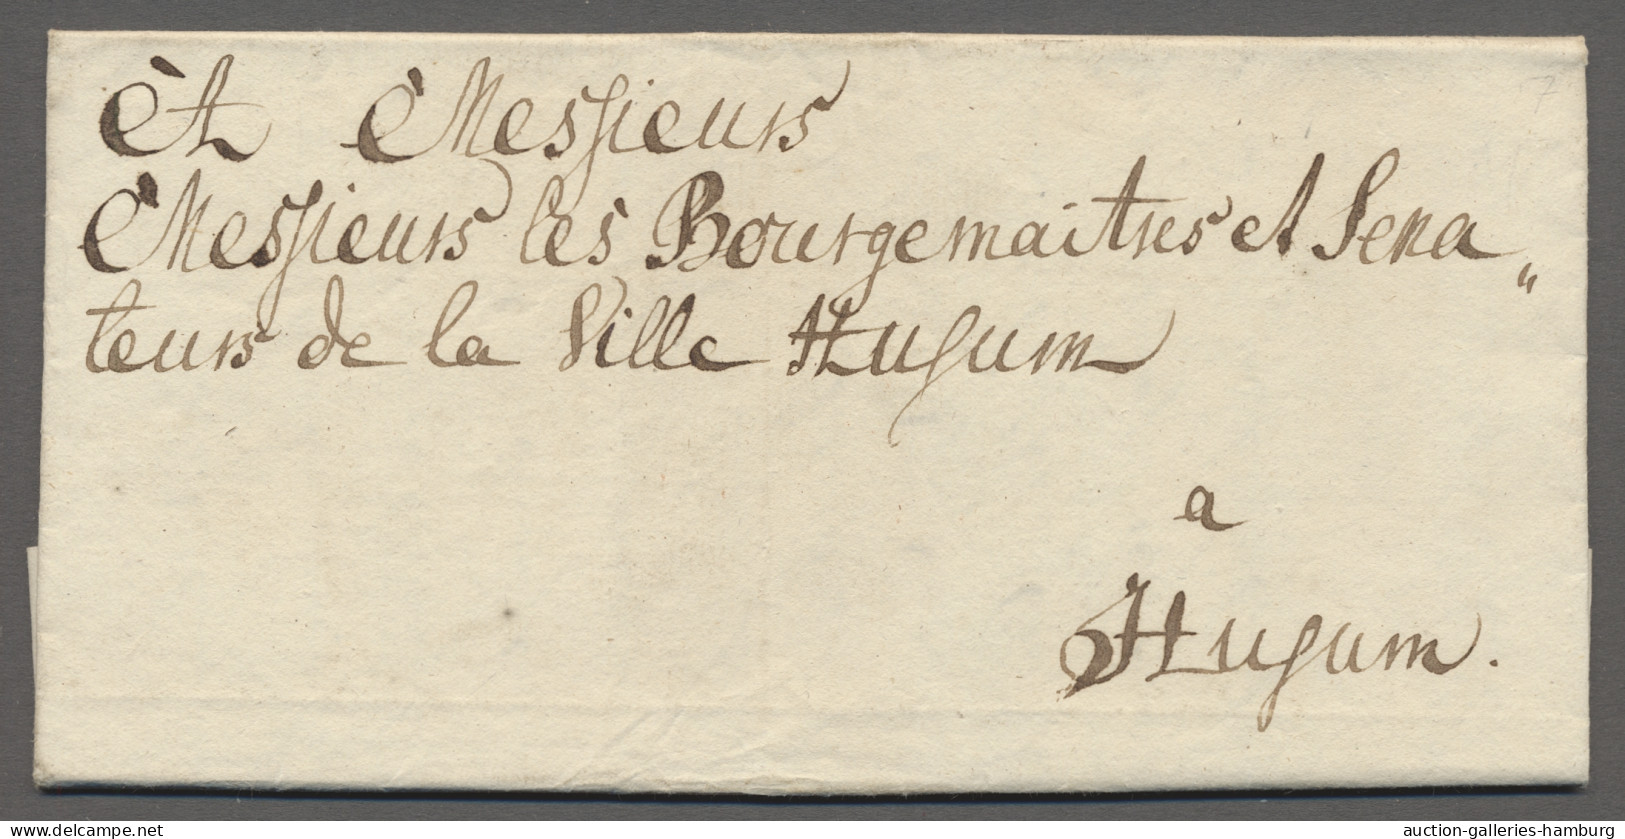 A Messieurs
Messieurs les Bourgemaitres et Sena„
teurs de la Ville Husum
a
Husum.
7
www.delcampe.net
auction-galleries-hamburg